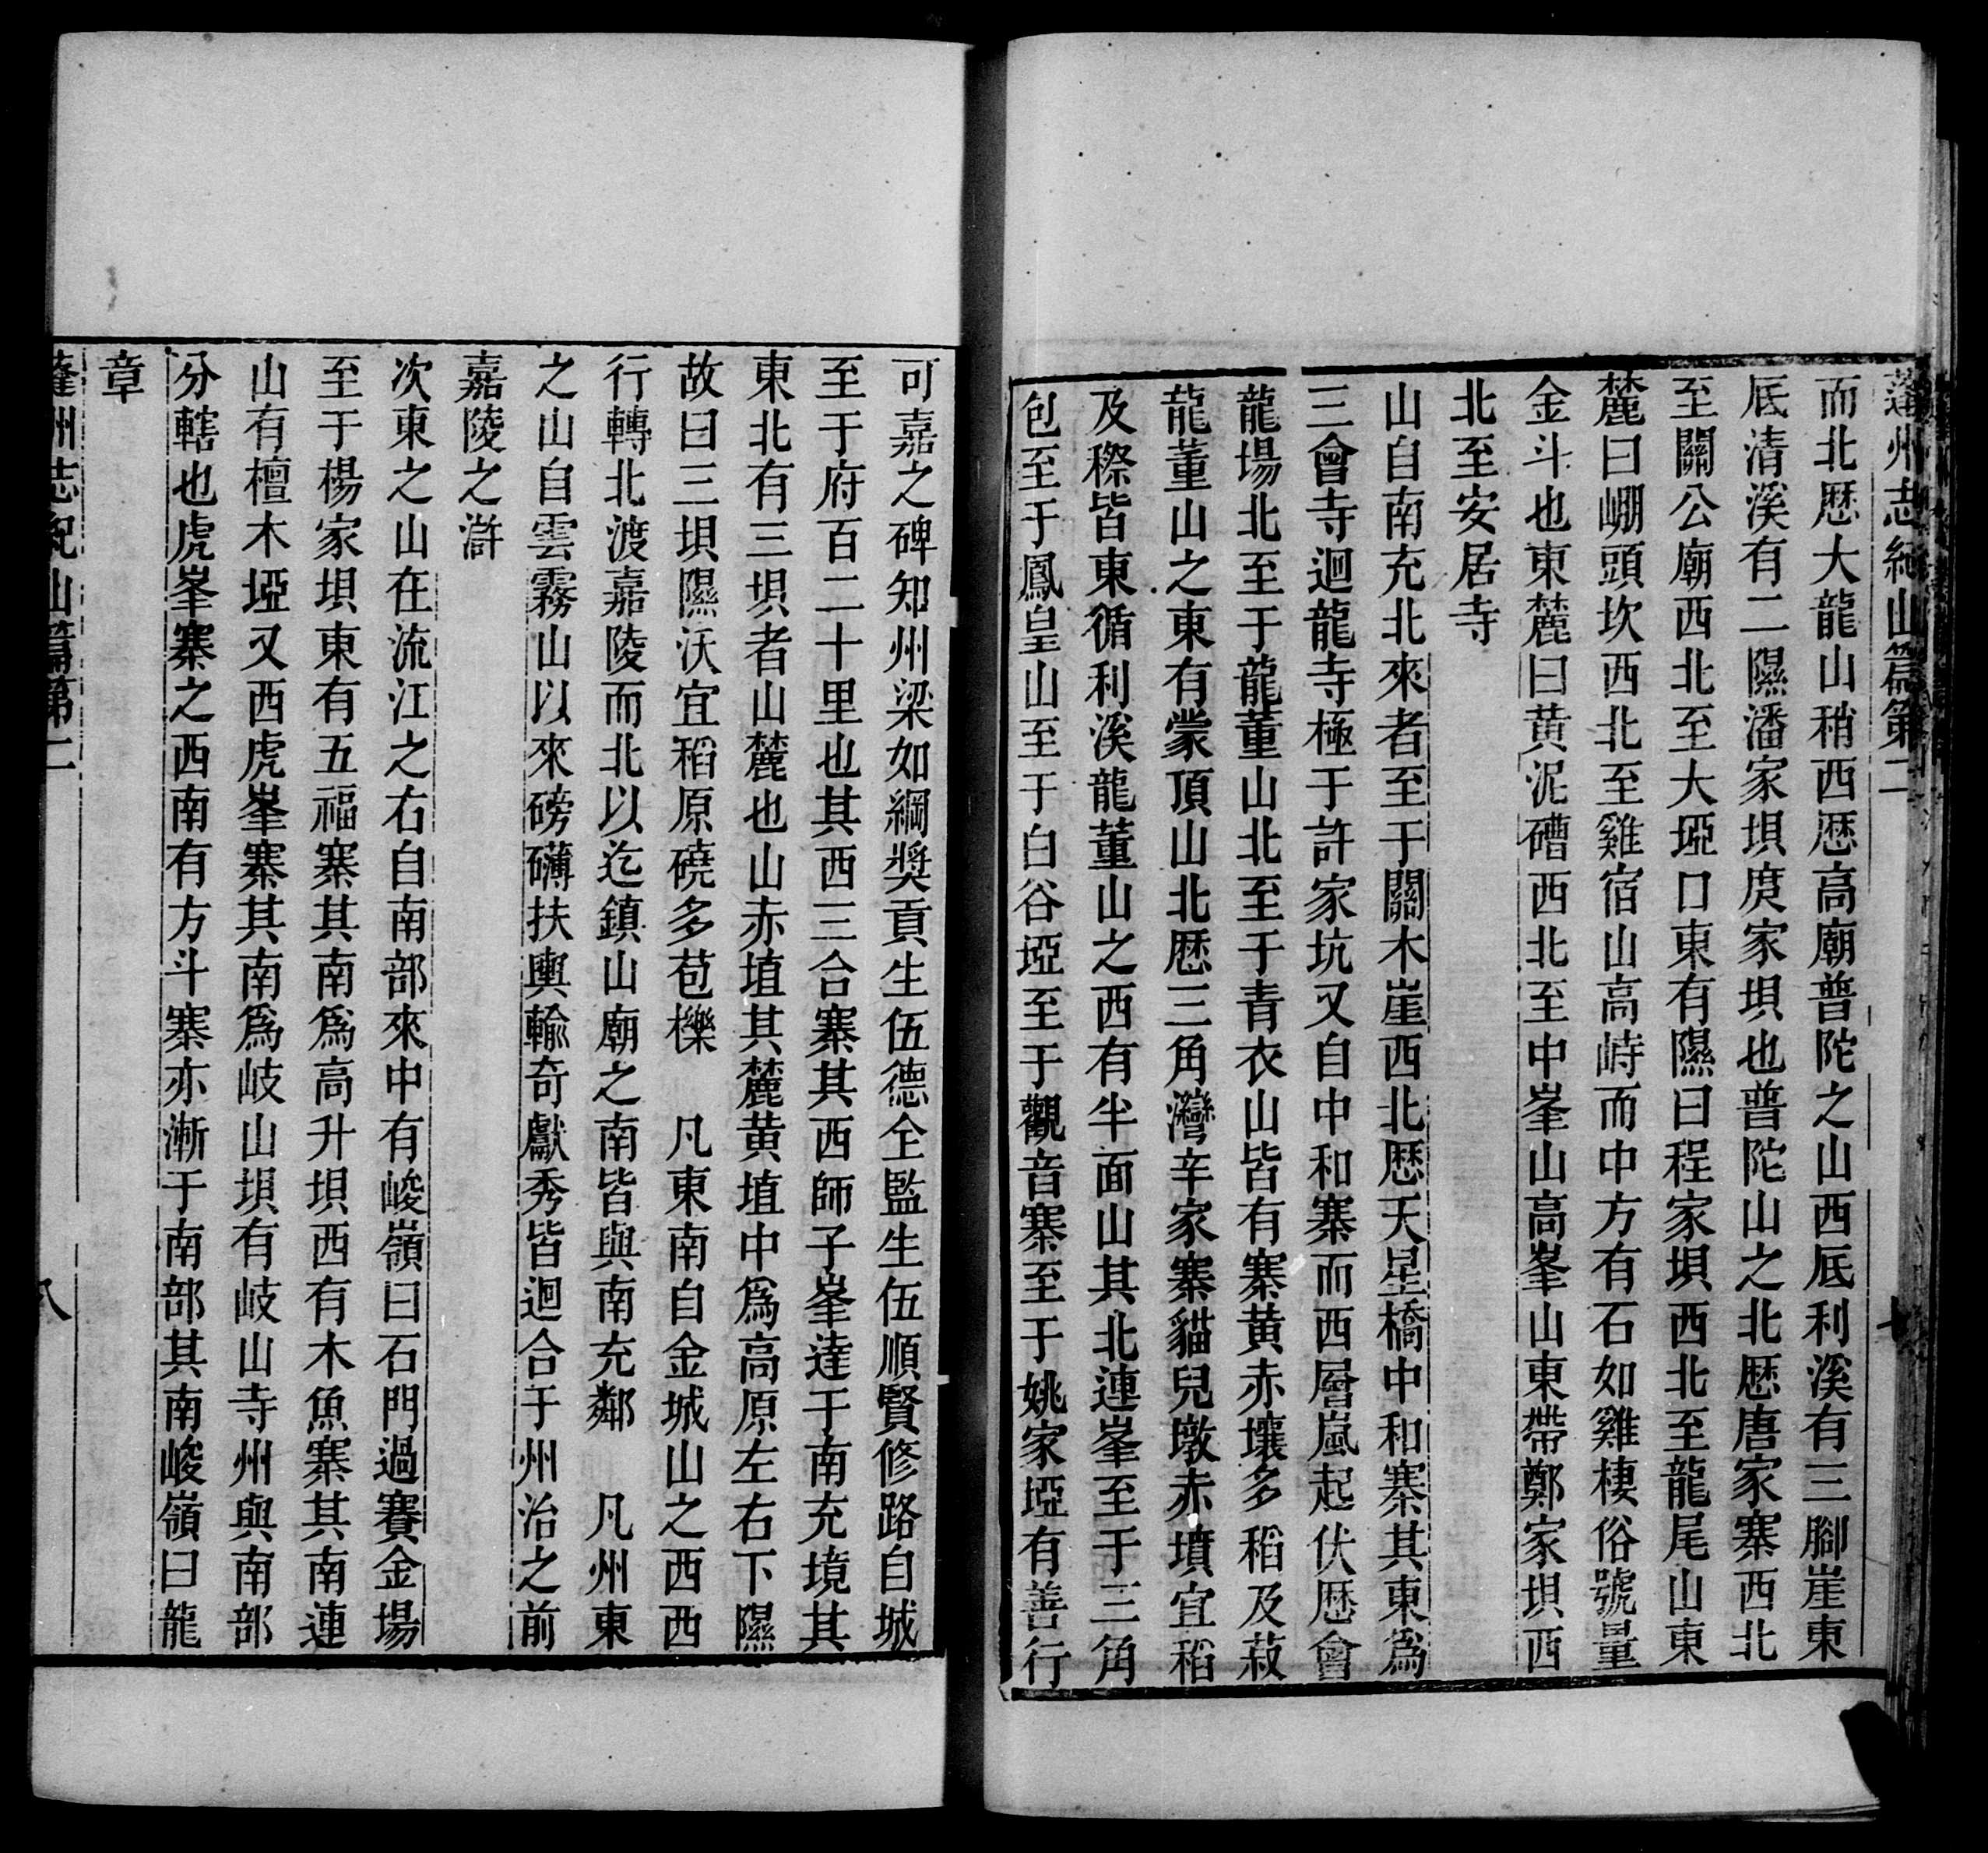 蓬州志紀山篇第二 七
而北歷大龍山稍西歷高廟普陀之山西底利溪有三腳崖東
底清溪有二隰潘家垻庹家垻也普陀山之北歷唐家寨西北
至關公廟西北至大埡口東有隰曰程家垻西北至龍尾山東
麓曰崩頭坎西北至雞宿山高峙而中方有石如雞棲俗號量
金斗也東麓曰黄泥磳西北至中峯山高峯山東帶鄭家垻西
北至安居寺
山自南充北來者至于關木崖西北歷天星橋中和寨其東爲
三會寺迴龍寺極于許家坑又自中和寨而西層嵐起伏歷會
龍場北至于龍董山北至于青衣山皆有寨黄赤壤多稻及菽
龍董山之東有蒙頂山北歷三角灣辛家寨貓兒墩赤墳宜稻
及穄皆東循利溪龍董山之西有半面山其北連峯至于三角
包至于鳳皇山至于白谷埡至于觀音寨至于姚家埡有善行
可嘉之碑知州梁如綱獎貢生伍德仝監生伍順賢修路自城
至于府百二十里也其西三合寨其西師子峯達于南充境其
東北有三垻者山麓也山赤埴其麓黄埴中爲高原左右下隰
故曰三垻隰沃宜稻原磽多苞櫟 凡東南自金城山之西西
行轉北渡嘉陵而北以迄鎮山廟之南皆與南充鄰 凡州東
之山自雲霧山以來磅礴扶輿輸奇獻秀皆迴合于州治之前
嘉陵之滸
次東之山在流江之右自南部來中有峻嶺曰石門過賽金場
至于楊家垻東有五福寨其南爲高升垻西有木魚寨其南連
山有檀木埡又西虎峯寨其南爲岐山垻有岐山寺州與南部
分轄也虎峯寨之西南有方斗寨亦漸于南部其南峻嶺曰龍
章
蓬州志紀山篇第二 八